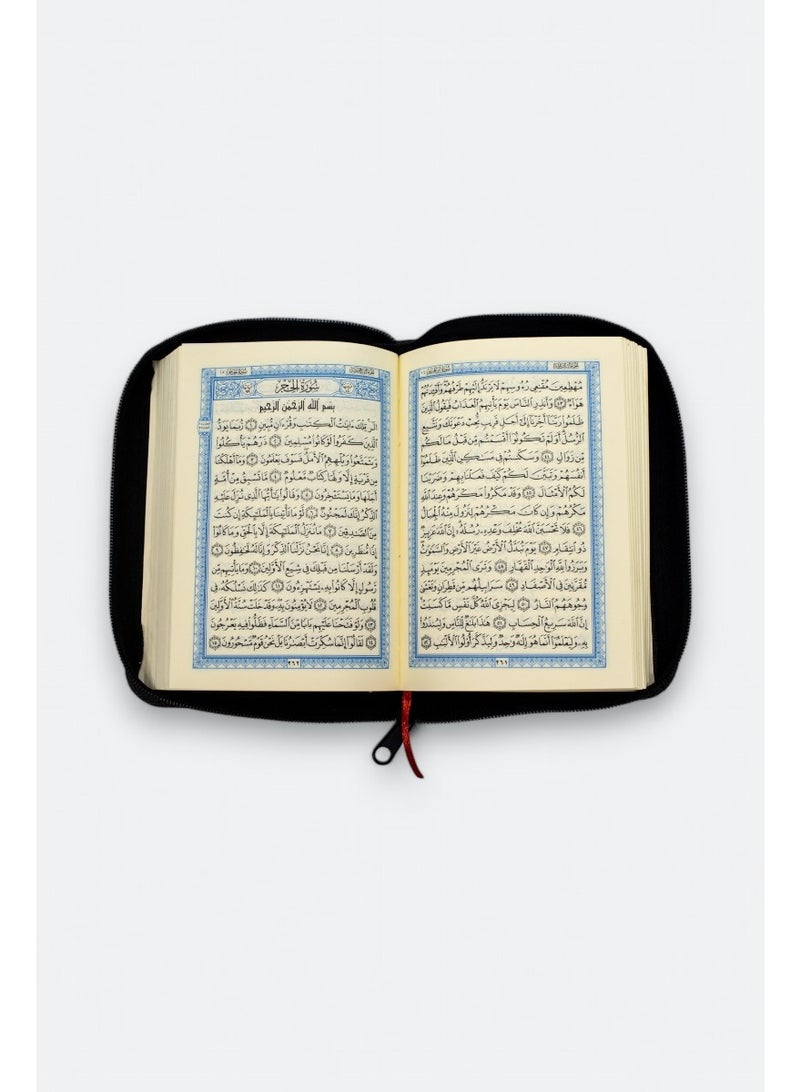 مُهْطِعِينَ مُقْنِعِي رُءُوسِهِمْ لَا يَرْتَدُّ إِلَيْهِمْ طَرْفُهُمْ وَأَفْـِٔدَتُهُمْ
هَوَآءٌ ٤٣ وَأَنذِرِ ٱلنَّاسَ يَوْمَ يَأْتِيهِمُ ٱلْعَذَابُ فَيَقُولُ ٱلَّذِينَ
ظَلَمُوا۟ رَبَّنَآ أَخِّرْنَآ إِلَىٰٓ أَجَلٍ قَرِيبٍ نُّجِبْ دَعْوَتَكَ وَنَتَّبِعِ
ٱلرُّسُلَ أَوَلَمْ تَكُونُوٓا۟ أَقْسَمْتُم مِّن قَبْلُ مَا لَكُم
مِّن زَوَالٍ ٤٤ وَسَكَنتُمْ فِي مَسَٰكِنِ ٱلَّذِينَ ظَلَمُوٓا۟
أَنفُسَهُمْ وَتَبَيَّنَ لَكُمْ كَيْفَ فَعَلْنَا بِهِمْ وَضَرَبْنَا
لَكُمُ ٱلْأَمْثَالَ ٤٥ وَقَدْ مَكَرُوا۟ مَكْرَهُمْ وَعِندَ ٱللَّهِ
مَكْرُهُمْ وَإِن كَانَ مَكْرُهُمْ لِتَزُولَ مِنْهُ ٱلْجِبَالُ
٤٦ فَلَا تَحْسَبَنَّ ٱللَّهَ مُخْلِفَ وَعْدِهِۦ رُسُلَهُۥٓ إِنَّ ٱللَّهَ عَزِيزٌ
ذُو ٱنتِقَامٍ ٤٧ يَوْمَ تُبَدَّلُ ٱلْأَرْضُ غَيْرَ ٱلْأَرْضِ وَٱلسَّمَٰوَٰتُ
وَبَرَزُوا۟ لِلَّهِ ٱلْوَٰحِدِ ٱلْقَهَّارِ ٤٨ وَتَرَى ٱلْمُجْرِمِينَ يَوْمَئِذٍ
مُّقَرَّنِينَ فِي ٱلْأَصْفَادِ ٤٩ سَرَابِيلُهُم مِّن قَطِرَانٍ وَتَغْشَىٰ
وُجُوهَهُمُ ٱلنَّارُ ٥٠ لِيَجْزِيَ ٱللَّهُ كُلَّ نَفْسٍ مَّا كَسَبَتْ
إِنَّ ٱللَّهَ سَرِيعُ ٱلْحِسَابِ ٥١ هَٰذَا بَلَٰغٌ لِّلنَّاسِ وَلِيُنذَرُوا۟
بِهِۦ وَلِيَعْلَمُوٓا۟ أَنَّمَا هُوَ إِلَٰهٌ وَٰحِدٌ وَلِيَذَّكَّرَ أُو۟لُوا۟ ٱلْأَلْبَٰبِ ٥٢
٢٦١
سُورَةُ الحِجْرِ
بِسْمِ ٱللَّهِ ٱلرَّحْمَٰنِ ٱلرَّحِيمِ
الٓر تِلْكَ ءَايَٰتُ ٱلْكِتَٰبِ وَقُرْءَانٍ مُّبِينٍ ١ رُّبَمَا يَوَدُّ
ٱلَّذِينَ كَفَرُوا۟ لَوْ كَانُوا۟ مُسْلِمِينَ ٢ ذَرْهُمْ يَأْكُلُوا۟
وَيَتَمَتَّعُوا۟ وَيُلْهِهِمُ ٱلْأَمَلُ فَسَوْفَ يَعْلَمُونَ ٣ وَمَآ أَهْلَكْنَا
مِن قَرْيَةٍ إِلَّا وَلَهَا كِتَابٌ مَّعْلُومٌ ٤ مَّا تَسْبِقُ مِنْ أُمَّةٍ
أَجَلَهَا وَمَا يَسْتَـْٔخِرُونَ ٥ وَقَالُوا۟ يَٰٓأَيُّهَا ٱلَّذِي نُزِّلَ عَلَيْهِ
ٱلذِّكْرُ إِنَّكَ لَمَجْنُونٌ ٦ لَّوْ مَا تَأْتِينَا بِٱلْمَلَٰٓئِكَةِ إِن كُنتَ
مِنَ ٱلصَّٰدِقِينَ ٧ مَا نُنَزِّلُ ٱلْمَلَٰٓئِكَةَ إِلَّا بِٱلْحَقِّ وَمَا كَانُوٓا۟
إِذًا مُّنظَرِينَ ٨ إِنَّا نَحْنُ نَزَّلْنَا ٱلذِّكْرَ وَإِنَّا لَهُۥ لَحَٰفِظُونَ ٩
وَلَقَدْ أَرْسَلْنَا مِن قَبْلِكَ فِي شِيَعِ ٱلْأَوَّلِينَ ١٠ وَمَا يَأْتِيهِم مِّن
رَّسُولٍ إِلَّا كَانُوا۟ بِهِۦ يَسْتَهْزِءُونَ ١١ كَذَٰلِكَ نَسْلُكُهُۥ فِي
قُلُوبِ ٱلْمُجْرِمِينَ ١٢ لَا يُؤْمِنُونَ بِهِۦ وَقَدْ خَلَتْ سُنَّةُ ٱلْأَوَّلِينَ
١٣ وَلَوْ فَتَحْنَا عَلَيْهِم بَابًا مِّنَ ٱلسَّمَآءِ فَظَلُّوا۟ فِيهِ يَعْرُجُونَ
١٤ لَقَالُوٓا۟ إِنَّمَا سُكِّرَتْ أَبْصَٰرُنَا بَلْ نَحْنُ قَوْمٌ مَّسْحُورُونَ ١٥
٢٦٢